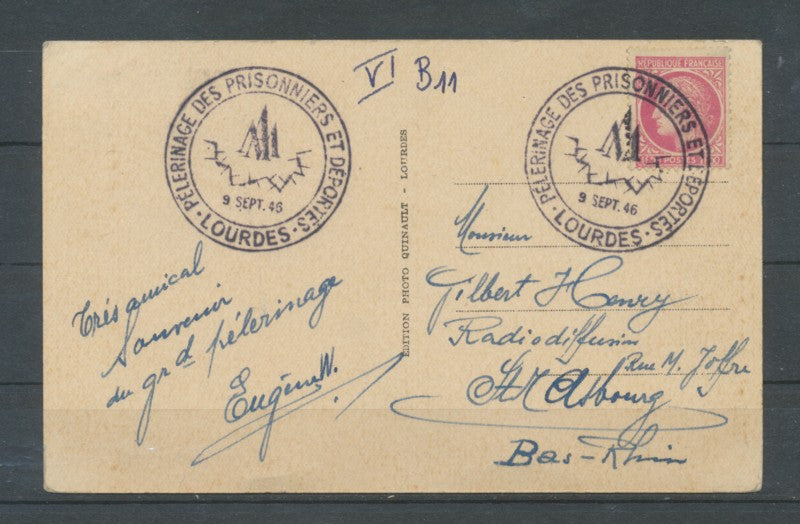 VI B11
PÈLERINAGE DES PRISONNIERS ET DÉPORTÉS
9 SEPT. 46
· LOURDES ·
Très amical
Souvenir
du grd pélerinage
Eugène W.
ÉDITION PHOTO QUINAULT - LOURDES
PÈLERINAGE DES PRISONNIERS ET DÉPORTÉS
9 SEPT. 46
· LOURDES ·
RÉPUBLIQUE FRANÇAISE
POSTES
Monsieur
Gilbert Henry
Radiodiffusion
Rue M. Joffre
Strasbourg
Bas-Rhin